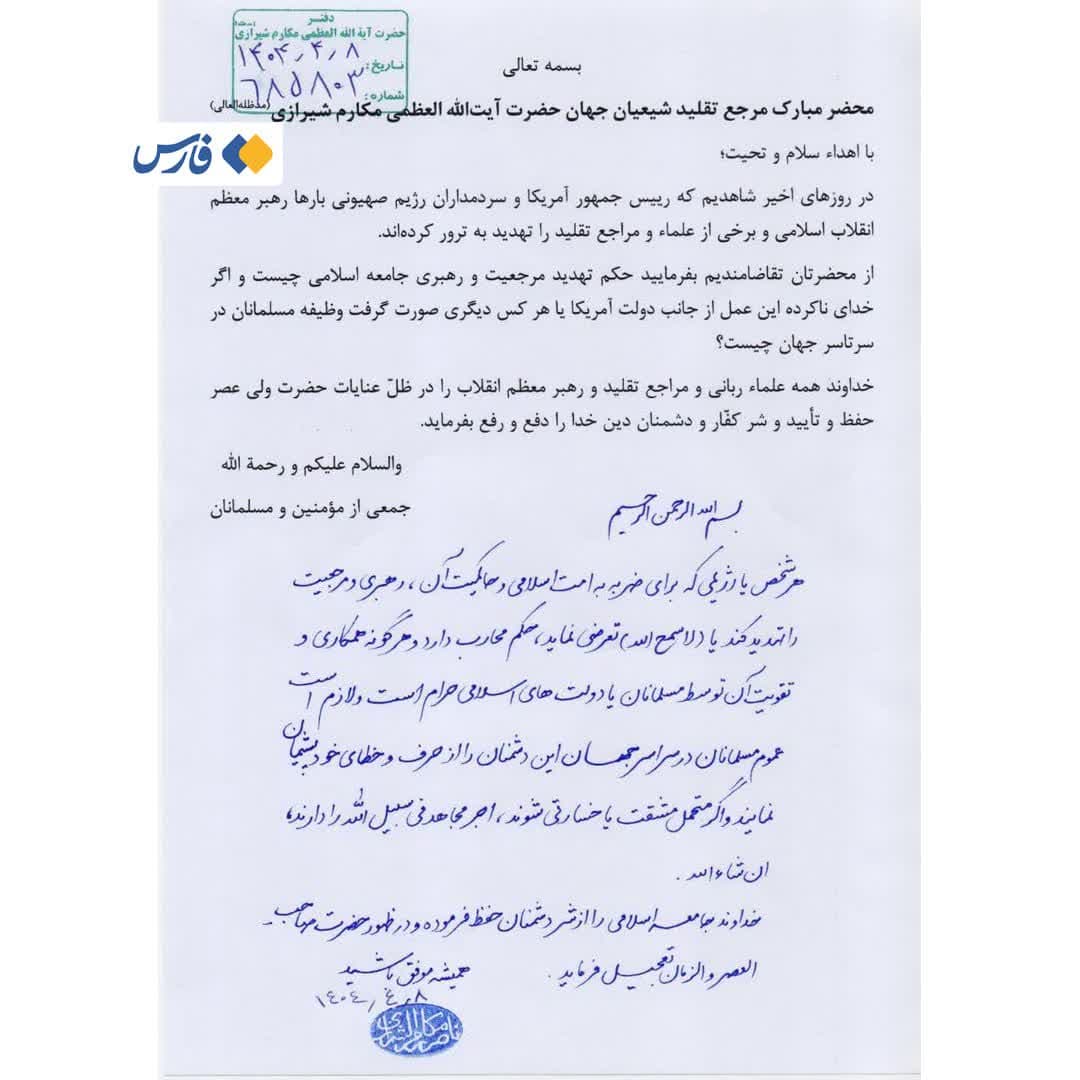 دفتر
حضرت آیة الله العظمی مکارم شیرازی
تاریخ: ۱۴۰۴٫۴٫۸
شماره: ۶۸۵۸۰۳
بسمه تعالی
محضر مبارک مرجع تقلید شیعیان جهان حضرت آیت‌الله العظمی مکارم شیرازی (مدظله‌العالی)
فارس
با اهداء سلام و تحیت؛
در روزهای اخیر شاهدیم که رییس جمهور آمریکا و سردمداران رژیم صهیونی بارها رهبر معظم
انقلاب اسلامی و برخی از علماء و مراجع تقلید را تهدید به ترور کرده‌اند.
از محضرتان تقاضامندیم بفرمایید حکم تهدید مرجعیت و رهبری جامعه اسلامی چیست و اگر
خدای ناکرده این عمل از جانب دولت آمریکا یا هر کس دیگری صورت گرفت وظیفه مسلمانان در
سرتاسر جهان چیست؟
خداوند همه علماء ربانی و مراجع تقلید و رهبر معظم انقلاب را در ظلّ عنایات حضرت ولی عصر
حفظ و تأیید و شر کفّار و دشمنان دین خدا را دفع و رفع بفرماید.
والسلام علیکم و رحمة الله
جمعی از مؤمنین و مسلمانان
بسم الله الرحمن الرحیم
هر شخص یا رژیمی که برای ضربه به امت اسلامی و حاکمیت آن، رهبری و مرجعیت
را تهدید کند یا (لا سمح الله) تعرضی نماید، حکم محارب دارد و هرگونه همکاری و
تقویت آن توسط مسلمانان یا دولت های اسلامی حرام است و لازم است
عموم مسلمانان در سراسر جهان این دشمنان را از حرف و خطای خود پشیمان
نمایند و اگر متحمل مشقت یا خسارتی شوند، اجر مجاهد فی سبیل الله را دارند،
ان شاء الله.
خداوند جامعه اسلامی را از شر دشمنان حفظ فرموده و در ظهور حضرت صاحب
العصر و الزمان تعجیل فرماید.
همیشه موفق باشید
۱۴۰۴٫۴٫۸